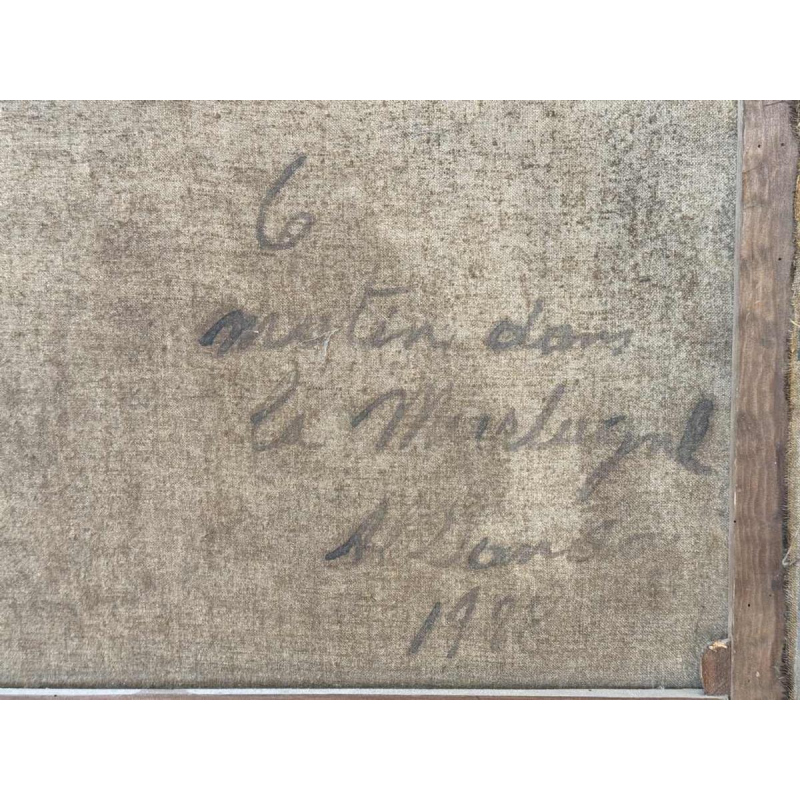 6
matin dans
la Montagne
A.